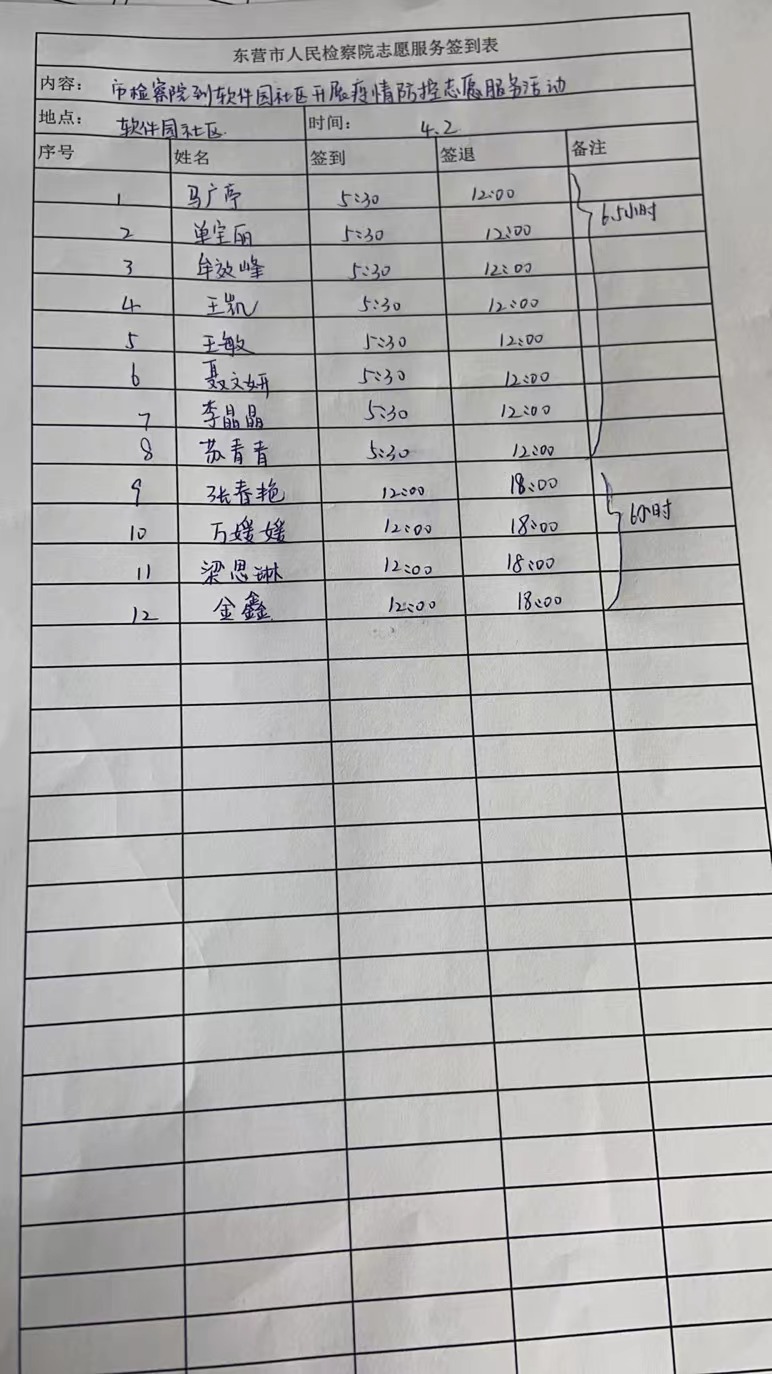 东营市人民检察院志愿服务签到表
内容： 市检察院到软件园社区开展疫情防控志愿服务活动
地点： 软件园社区 时间： 4.2
序号 姓名 签到 签退 备注
1 马广亭 5:30 12:00
2 单宝丽 5:30 12:00 6.5小时
3 牟效峰 5:30 12:00
4 王凯 5:30 12:00
5 王敏 5:30 12:00
6 聂文妍 5:30 12:00
7 李晶晶 5:30 12:00
8 苏青青 5:30 12:00
9 张春艳 12:00 18:00
10 万媛媛 12:00 18:00 6小时
11 梁思琳 12:00 18:00
12 金鑫 12:00 18:00